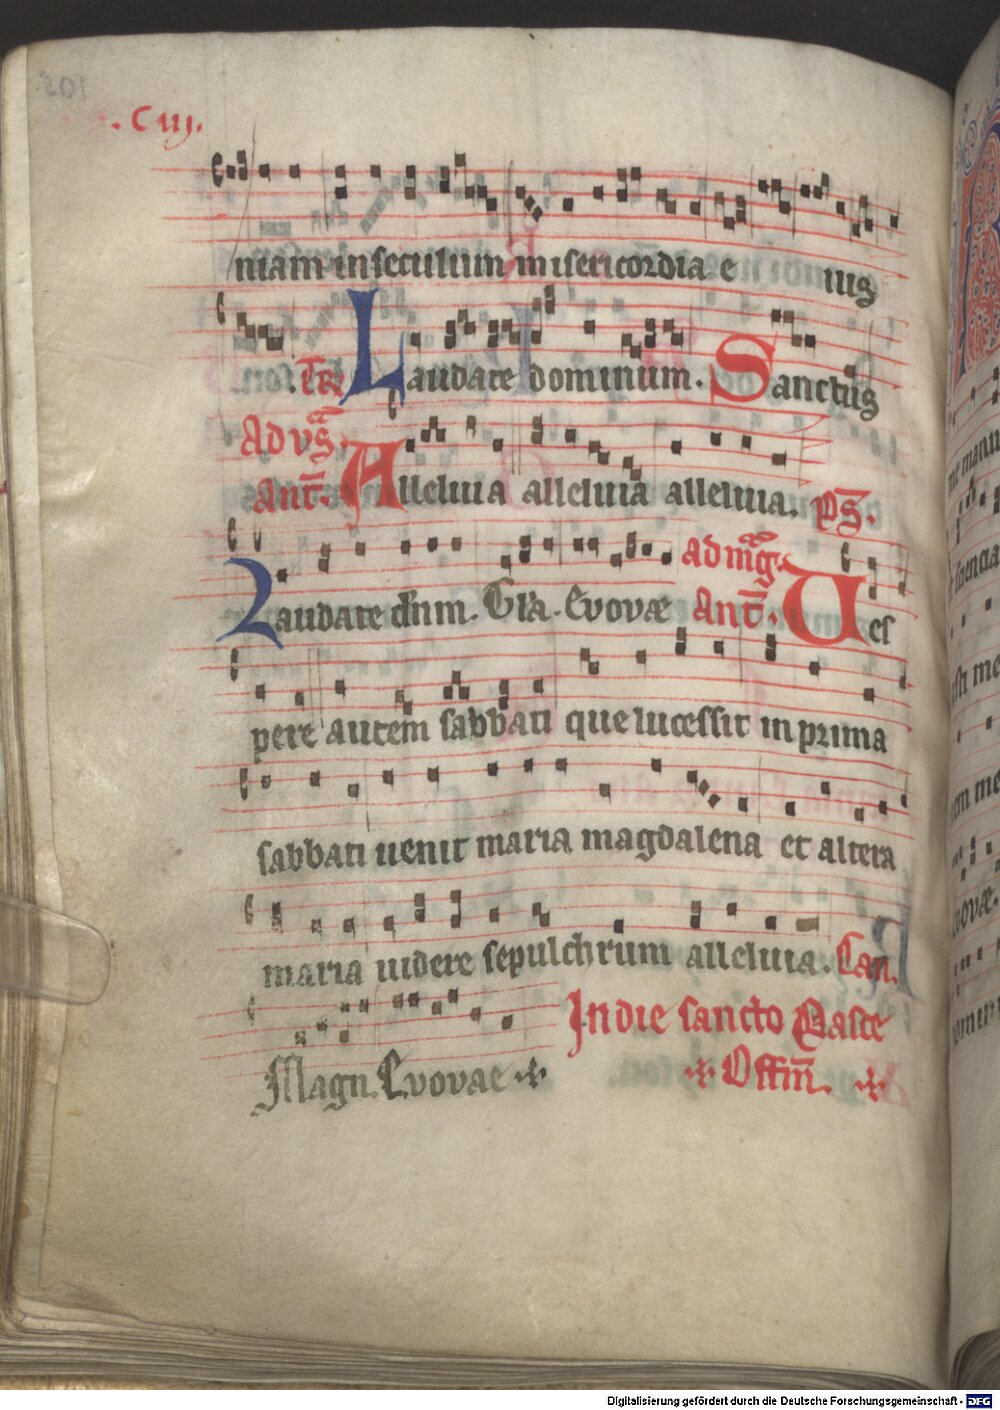 . C iij.
niam in seculum misericordia e ius
.Tr̄ Laudate dominum. Sanctus
Ad vs̄.
Ant̄. Alleluia alleluia alleluia. Ps̄.
Laudate dn̄m. Gl'a. Evovæ Ad mḡ. Ant̄. Ues
pere autem sabbati que lucessit in prima
sabbati uenit maria magdalena et altera
maria uidere sepulchrum alleluia. Can.
Magn. Evovae
In die sancto Pasce
Offm̄.
Digitalisierung gefördert durch die Deutsche Forschungsgemeinschaft - DFG